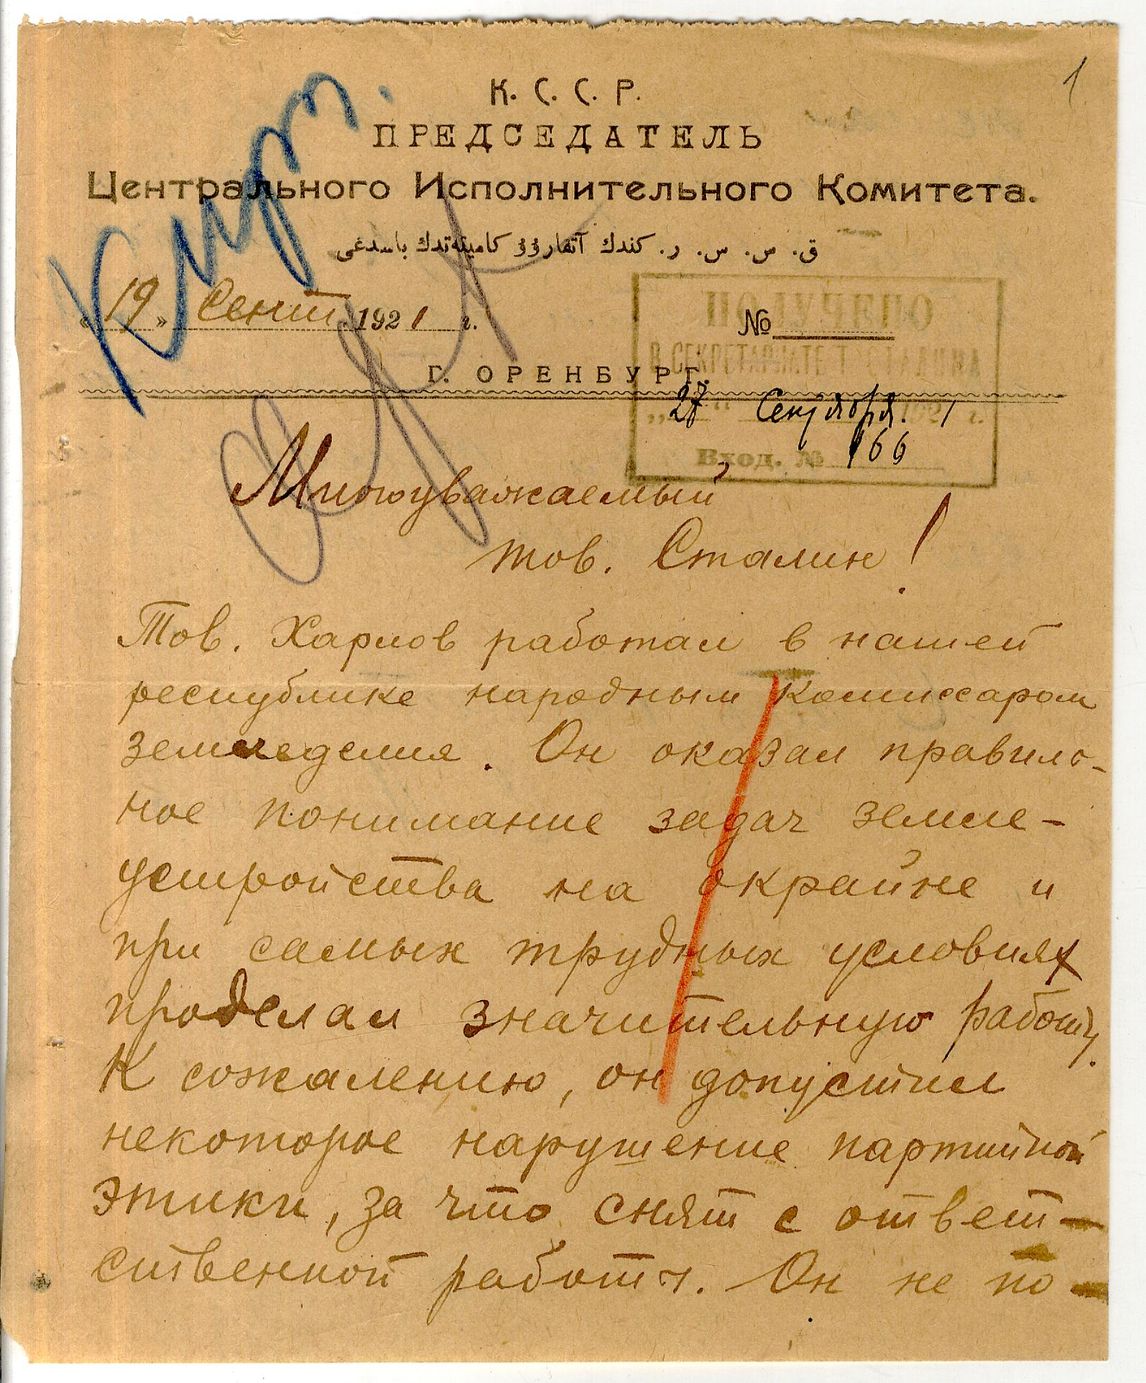 1
К. С. С. Р.
ПРЕДСЕДАТЕЛЬ
Центрального Исполнительного Комитета.
ق. س. س. ر. كندك آتقارۇۋ كاميتەتىدىڭ باسدغى
Кирг.
„19“ Сент 1921 г.
№
Г. ОРЕНБУРГ.
ПОЛУЧЕНО
В СЕКРЕТАРИАТЕ Т. СТАЛИНА
„27“ Сентября. 1921 г.
Вход. № 166
Многоуважаемый
тов. Сталин!
Тов. Харлов работал в нашей
республике народным комиссаром
земледелия. Он оказал правиль-
ное понимание задач земле-
устройства на окрайне и
при самых трудных условиях
проделал значительную работу.
К сожалению, он допустил
некоторое нарушение партийной
этики, за что снят с ответ-
ственной работы. Он не по-